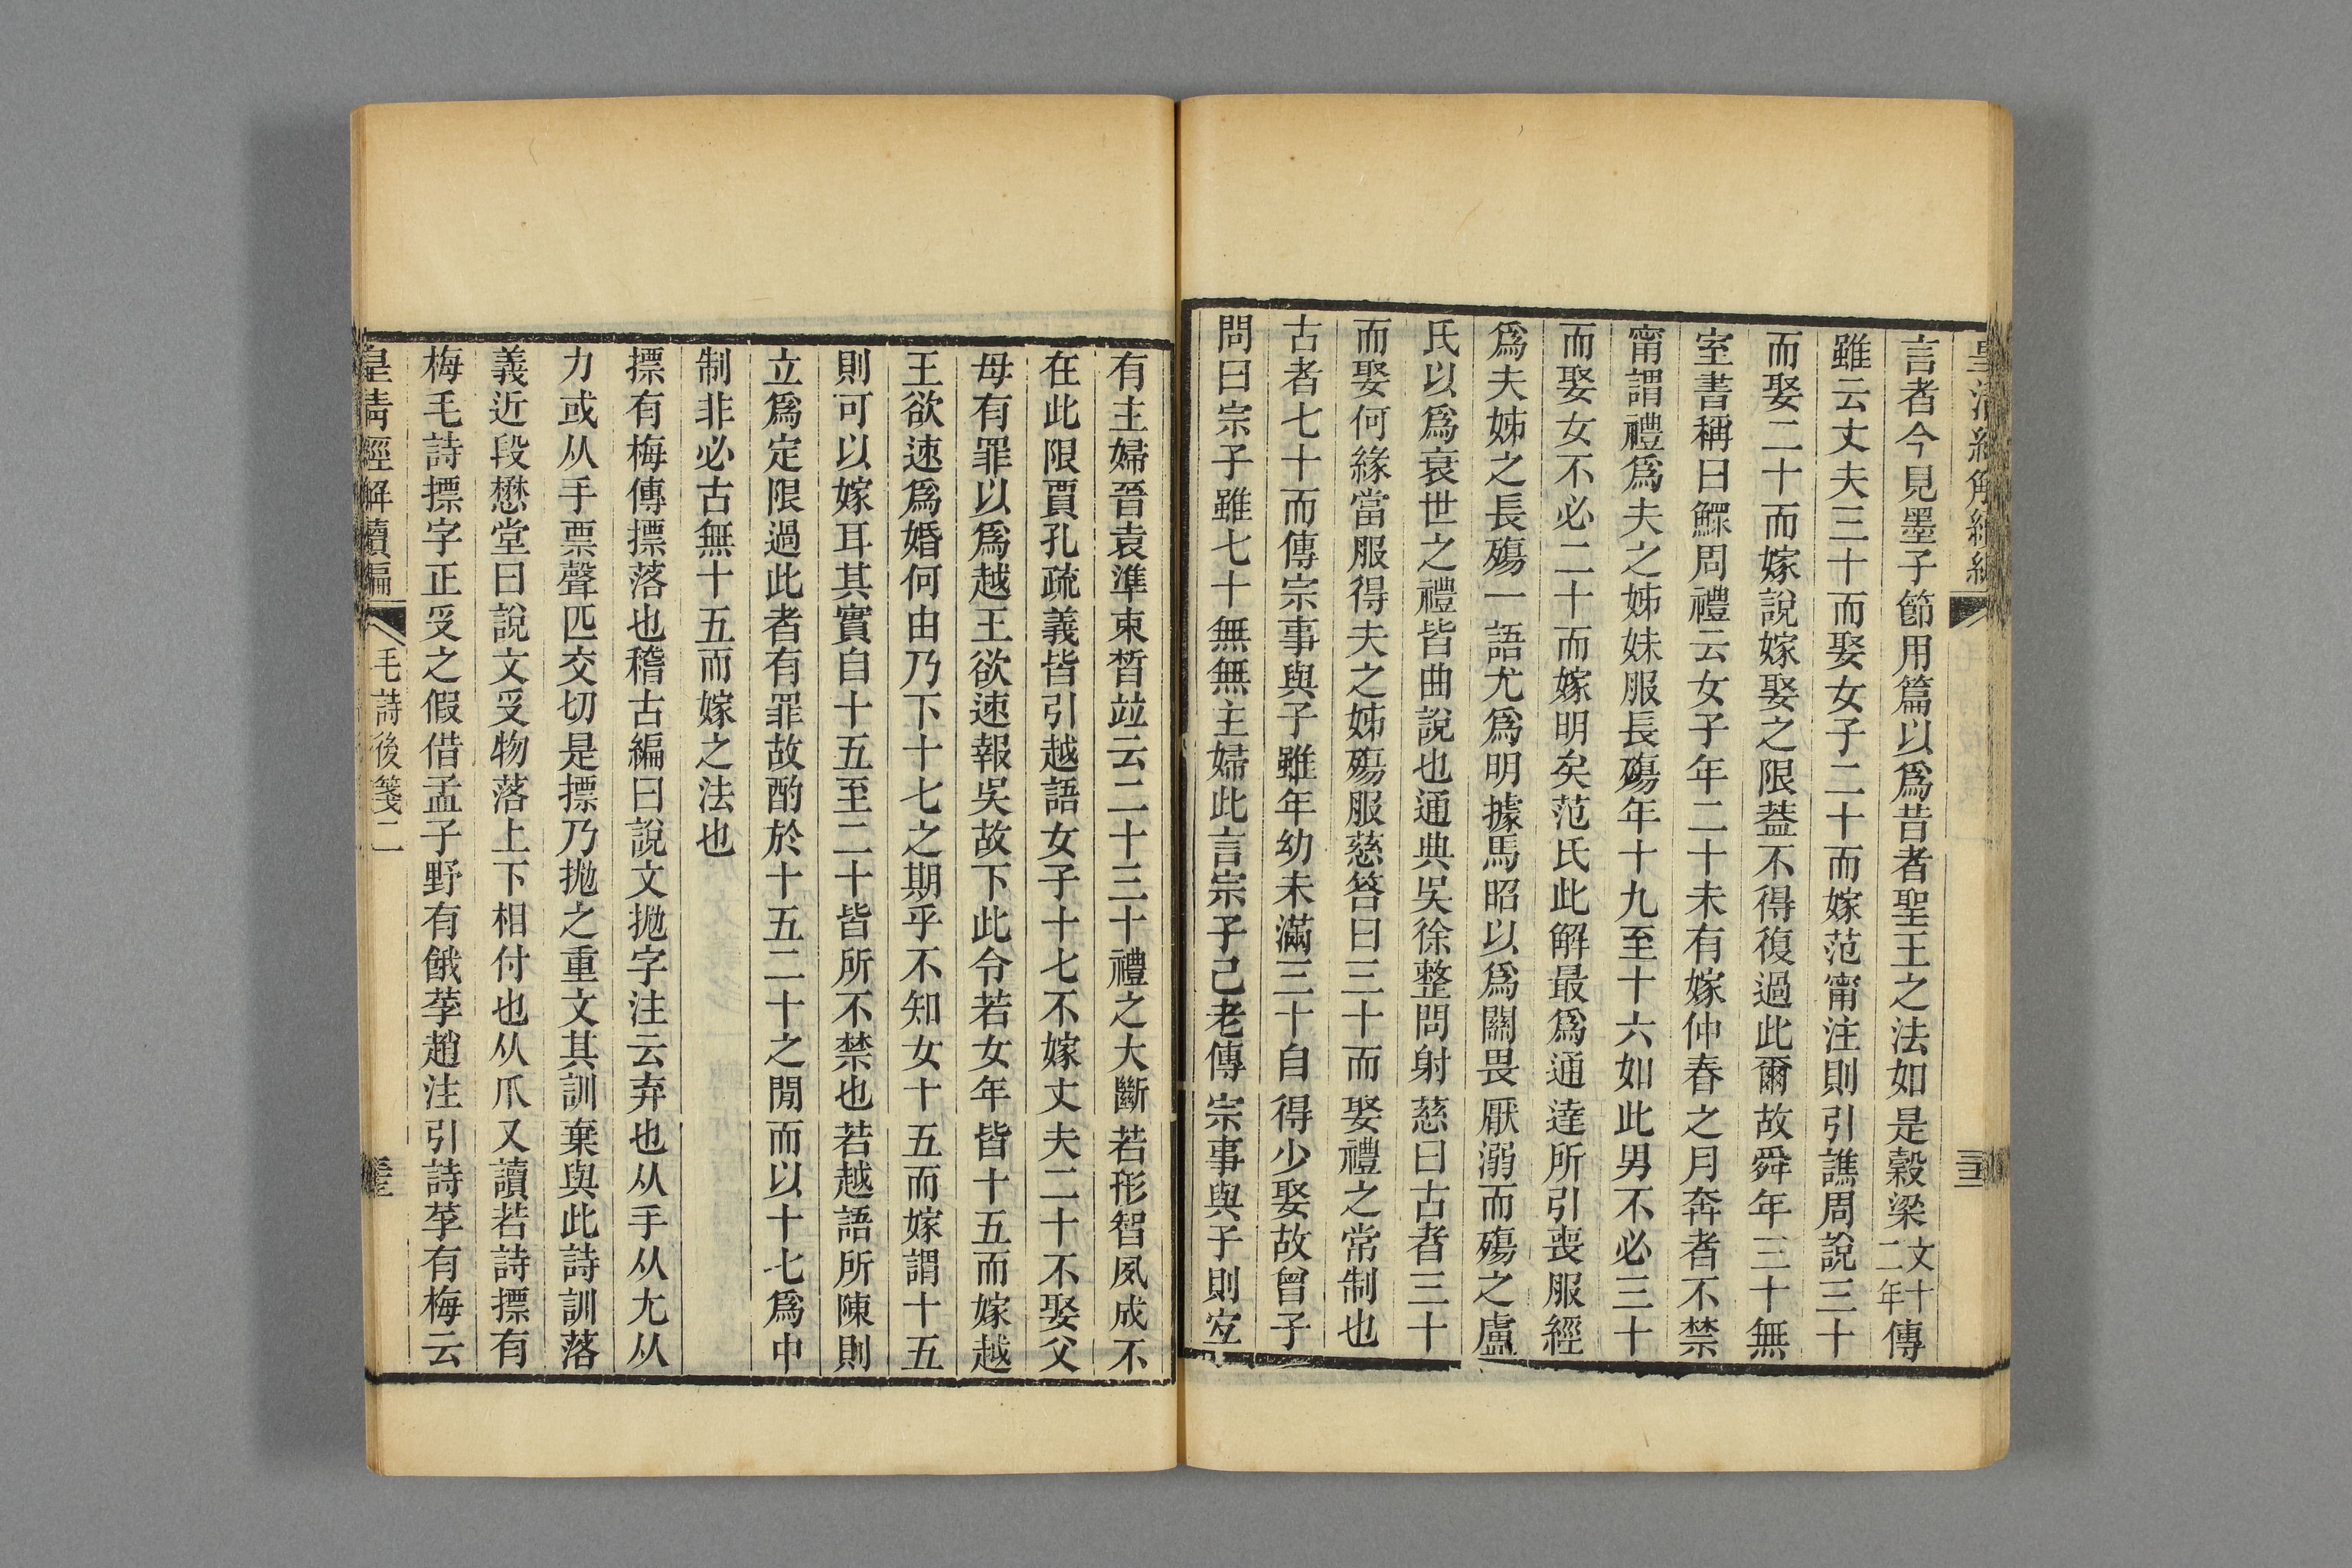 皇清經解續編
言者今見墨子節用篇以爲昔者聖王之法如是穀梁文十二年傳
雖云丈夫三十而娶女子二十而嫁范甯注則引譙周說三十
而娶二十而嫁說嫁娶之限葢不得復過此爾故舜年三十無
室書稱曰鰥周禮云女子年二十未有嫁仲春之月奔者不禁
甯謂禮爲夫之姊妹服長殤年十九至十六如此男不必三十
而娶女不必二十而嫁明矣范氏此解最爲通達所引喪服經
爲夫姊之長殤一語尤爲明據馬昭以爲關畏厭溺而殤之盧
氏以爲衰世之禮皆曲說也通典吳徐整問射慈曰古者三十
而娶何緣當服得夫之姊殤服慈答曰三十而娶禮之常制也
古者七十而傳宗事與子雖年幼未滿三十自得少娶故曾子
問曰宗子雖七十無無主婦此言宗子己老傳宗事與子則宐
有主婦晉袁準束晳竝云二十三十禮之大斷若形智夙成不
在此限賈孔疏義皆引越語女子十七不嫁丈夫二十不娶父
母有罪以爲越王欲速報吳故下此令若女年皆十五而嫁越
王欲速爲婚何由乃下十七之期乎不知女十五而嫁謂十五
則可以嫁耳其實自十五至二十皆所不禁也若越語所陳則
立爲定限過此者有罪故酌於十五二十之閒而以十七爲中
制非必古無十五而嫁之法也
摽有梅傳摽落也稽古編曰說文拋字注云弃也从手从尤从
力或从手票聲匹交切是摽乃拋之重文其訓棄與此詩訓落
義近段懋堂曰說文𠬪物落上下相付也从爪又讀若詩摽有
梅毛詩摽字正𠬪之假借孟子野有餓莩趙注引詩莩有梅云
皇清經解續編
毛詩後箋二